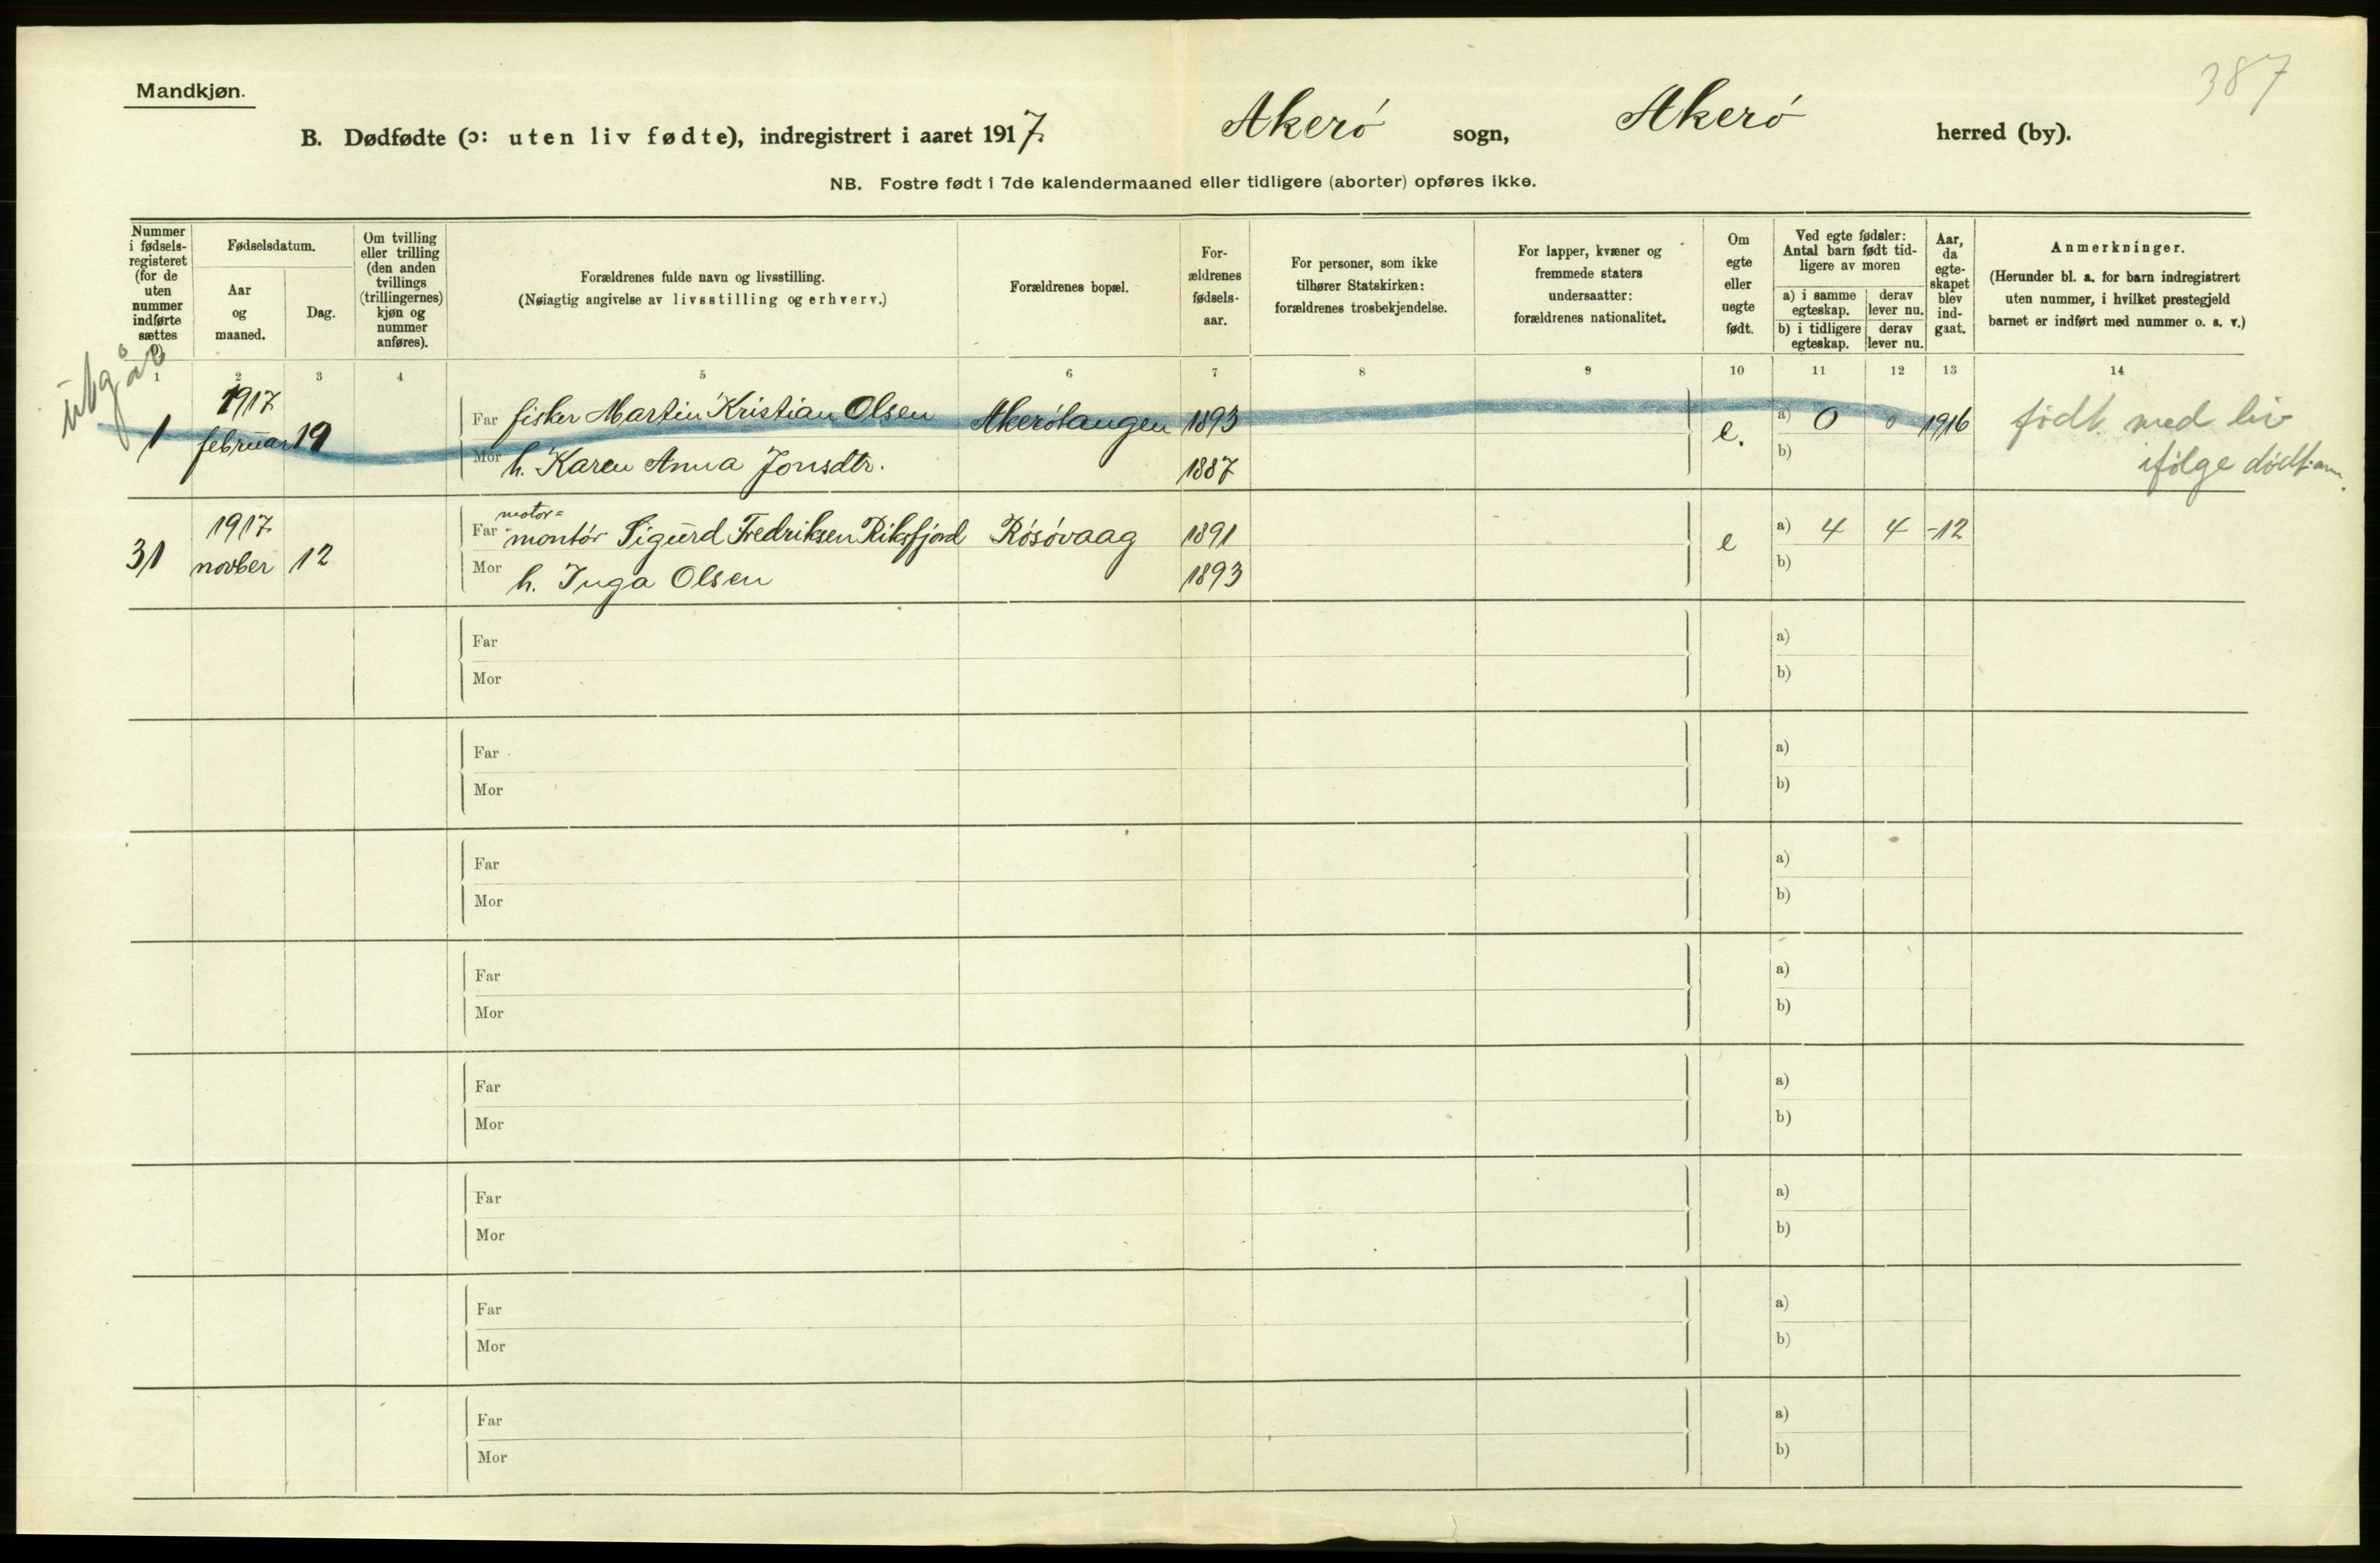 387
Mandkjøn.
B. Dødfødte (ɔ: uten liv fødte), indregistrert i aaret 1917. Akerö sogn, Akerö herred (by).
NB. Fostre født i 7de kalendermaaned eller tidligere (aborter) opføres ikke.
Nummer
i fødsels-
registeret
(for de
uten
nummer
indførte
sættes
0).
Fødselsdatum.
Aar
og
maaned.
Dag.
Om tvilling
eller trilling
(den anden
tvillings
(trillingernes)
kjøn og
nummer
anføres).
Forældrenes fulde navn og livsstilling.
(Nøiagtig angivelse av livsstilling og erhverv.)
Forældrenes bopæl.
For-
ældrenes
fødsels-
aar.
For personer, som ikke
tilhører Statskirken:
forældrenes trosbekjendelse.
For lapper, kvæner og
fremmede staters
undersaatter:
forældrenes nationalitet.
Om
egte
eller
uegte
født.
Ved egte fødsler:
Antal barn født tid-
ligere av moren
a) i samme
egteskap.
derav
lever nu.
b) i tidligere
egteskap.
derav
lever nu.
Aar,
da
egte-
skapet
blev
ind-
gaat.
Anmerkninger.
(Herunder bl. a. for barn indregistrert
uten nummer, i hvilket prestegjeld
barnet er indført med nummer o. s. v.)
1 2 3 4 5 6 7 8 9 10 11 12 13 14
utgår
1 1917 februar 19
Far fisker Martin Kristian Olsen Akerötangen 1893
Mor h. Karen Anna Jonsdtr. 1887
e. a) 0 0 1916
b)
født med liv
ifølge dødf.
31 1917 novber 12
motor=
Far montör Sigurd Fredriksen Riksfjord Rösövaag 1891
Mor h. Inga Olsen 1893
e a) 4 4 -12
b)
Far a)
Mor b)
Far a)
Mor b)
Far a)
Mor b)
Far a)
Mor b)
Far a)
Mor b)
Far a)
Mor b)
Far a)
Mor b)
Far a)
Mor b)